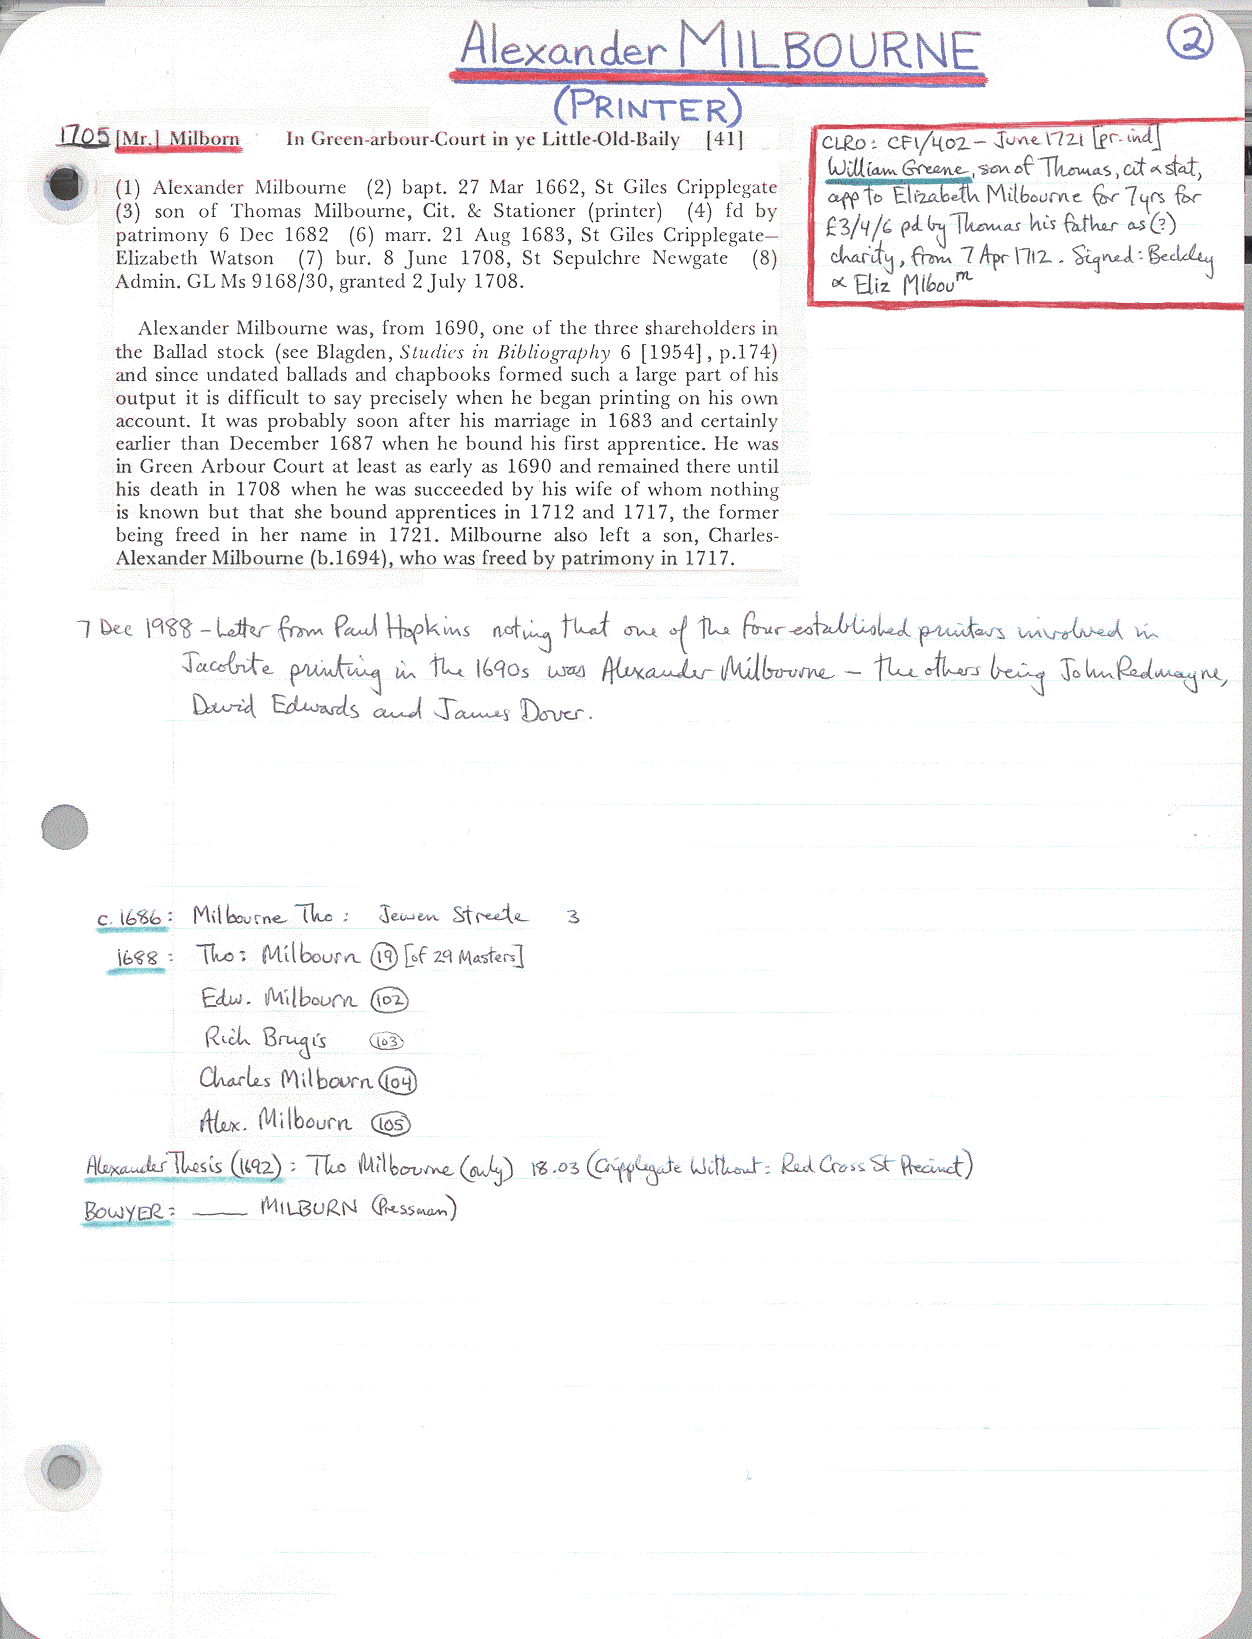 Alexander MILBOURNE
②
(PRINTER)
1705 [Mr.] Milborn In Green-arbour-Court in ye Little-Old-Baily [41]
(1) Alexander Milbourne (2) bapt. 27 Mar 1662, St Giles Cripplegate
(3) son of Thomas Milbourne, Cit. & Stationer (printer) (4) fd by
patrimony 6 Dec 1682 (6) marr. 21 Aug 1683, St Giles Cripplegate—
Elizabeth Watson (7) bur. 8 June 1708, St Sepulchre Newgate (8)
Admin. GL Ms 9168/30, granted 2 July 1708.
Alexander Milbourne was, from 1690, one of the three shareholders in
the Ballad stock (see Blagden, Studies in Bibliography 6 [1954], p.174)
and since undated ballads and chapbooks formed such a large part of his
output it is difficult to say precisely when he began printing on his own
account. It was probably soon after his marriage in 1683 and certainly
earlier than December 1687 when he bound his first apprentice. He was
in Green Arbour Court at least as early as 1690 and remained there until
his death in 1708 when he was succeeded by his wife of whom nothing
is known but that she bound apprentices in 1712 and 1717, the former
being freed in her name in 1721. Milbourne also left a son, Charles-
Alexander Milbourne (b.1694), who was freed by patrimony in 1717.
CLRO: CF1/402 - June 1721 [pr-ind]
William Greene, son of Thomas, cit & stat,
app to Elizabeth Milbourne for 7yrs for
£3/4/6 pd by Thomas his father as (?)
charity, from 7 Apr 1712. Signed: Beckley
& Eliz Mlbouᵐ
7 Dec 1988 - Letter from Paul Hopkins noting that one of the four established printers involved in
Jacobite printing in the 1690s was Alexander Milbourne - the others being John Redmayne,
David Edwards and James Dover.
c. 1686: Milbourne Tho: Jewen Streete 3
1688: Tho: Milbourn ⑲ [of 29 Masters]
Edw. Milbourn (102)
Rich Brugis (103)
Charles Milbourn (104)
Alex. Milbourn (105)
Alexander Thesis (1692): Tho Milbourne (only) 18.03 (Cripplegate Without: Red Cross St Precinct)
BOWYER: —— MILBURN (Pressman)